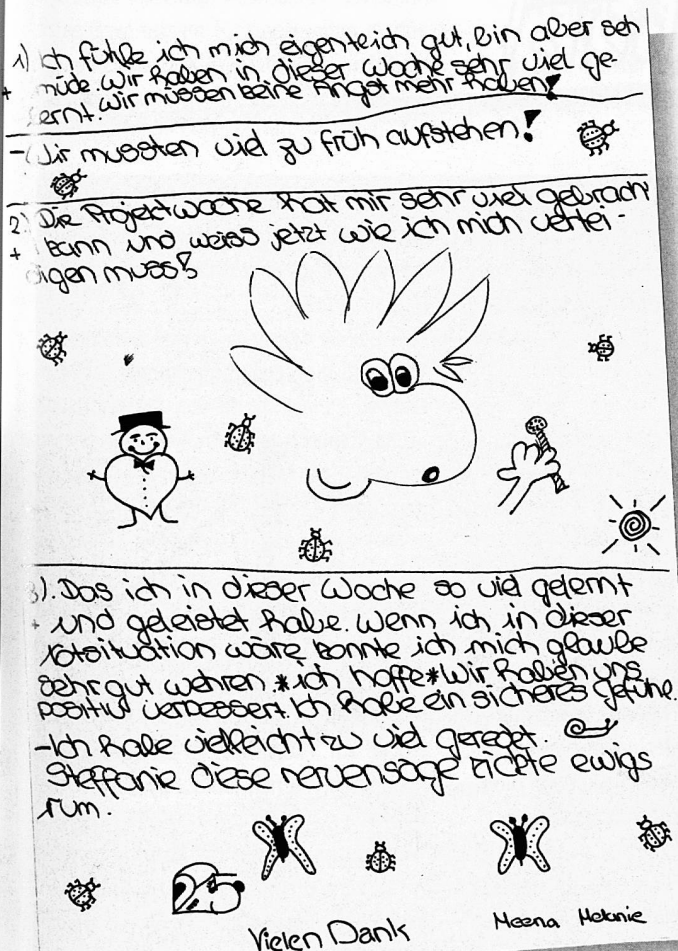 1) Ich fühle ich mich eigenteich gut, bin aber seh
+ müde. Wir haben in dieser Woche sehr viel ge-
lernt. Wir müssen keine Angst mehr haben!
- Wir mussten viel zu früh aufstehen!
2) Die Projektwoche hat mir sehr viel gebrach
+ kann und weiss jetzt wie ich mich vertei-
digen muss!
3). Das ich in dieser Woche so viel gelernt
+ und geleistet habe. Wenn ich in dieser
Notsituation wäre, könnte ich mich glaube
sehr gut wehren. *ich hoffe* Wir haben uns
positiv verbessert. Ich habe ein sicheres Gefühl.
-Ich habe vielleicht zu viel geredet.
Steffanie diese nervensäge zickte ewigs
rum.
Vielen Dank
Meena Melanie